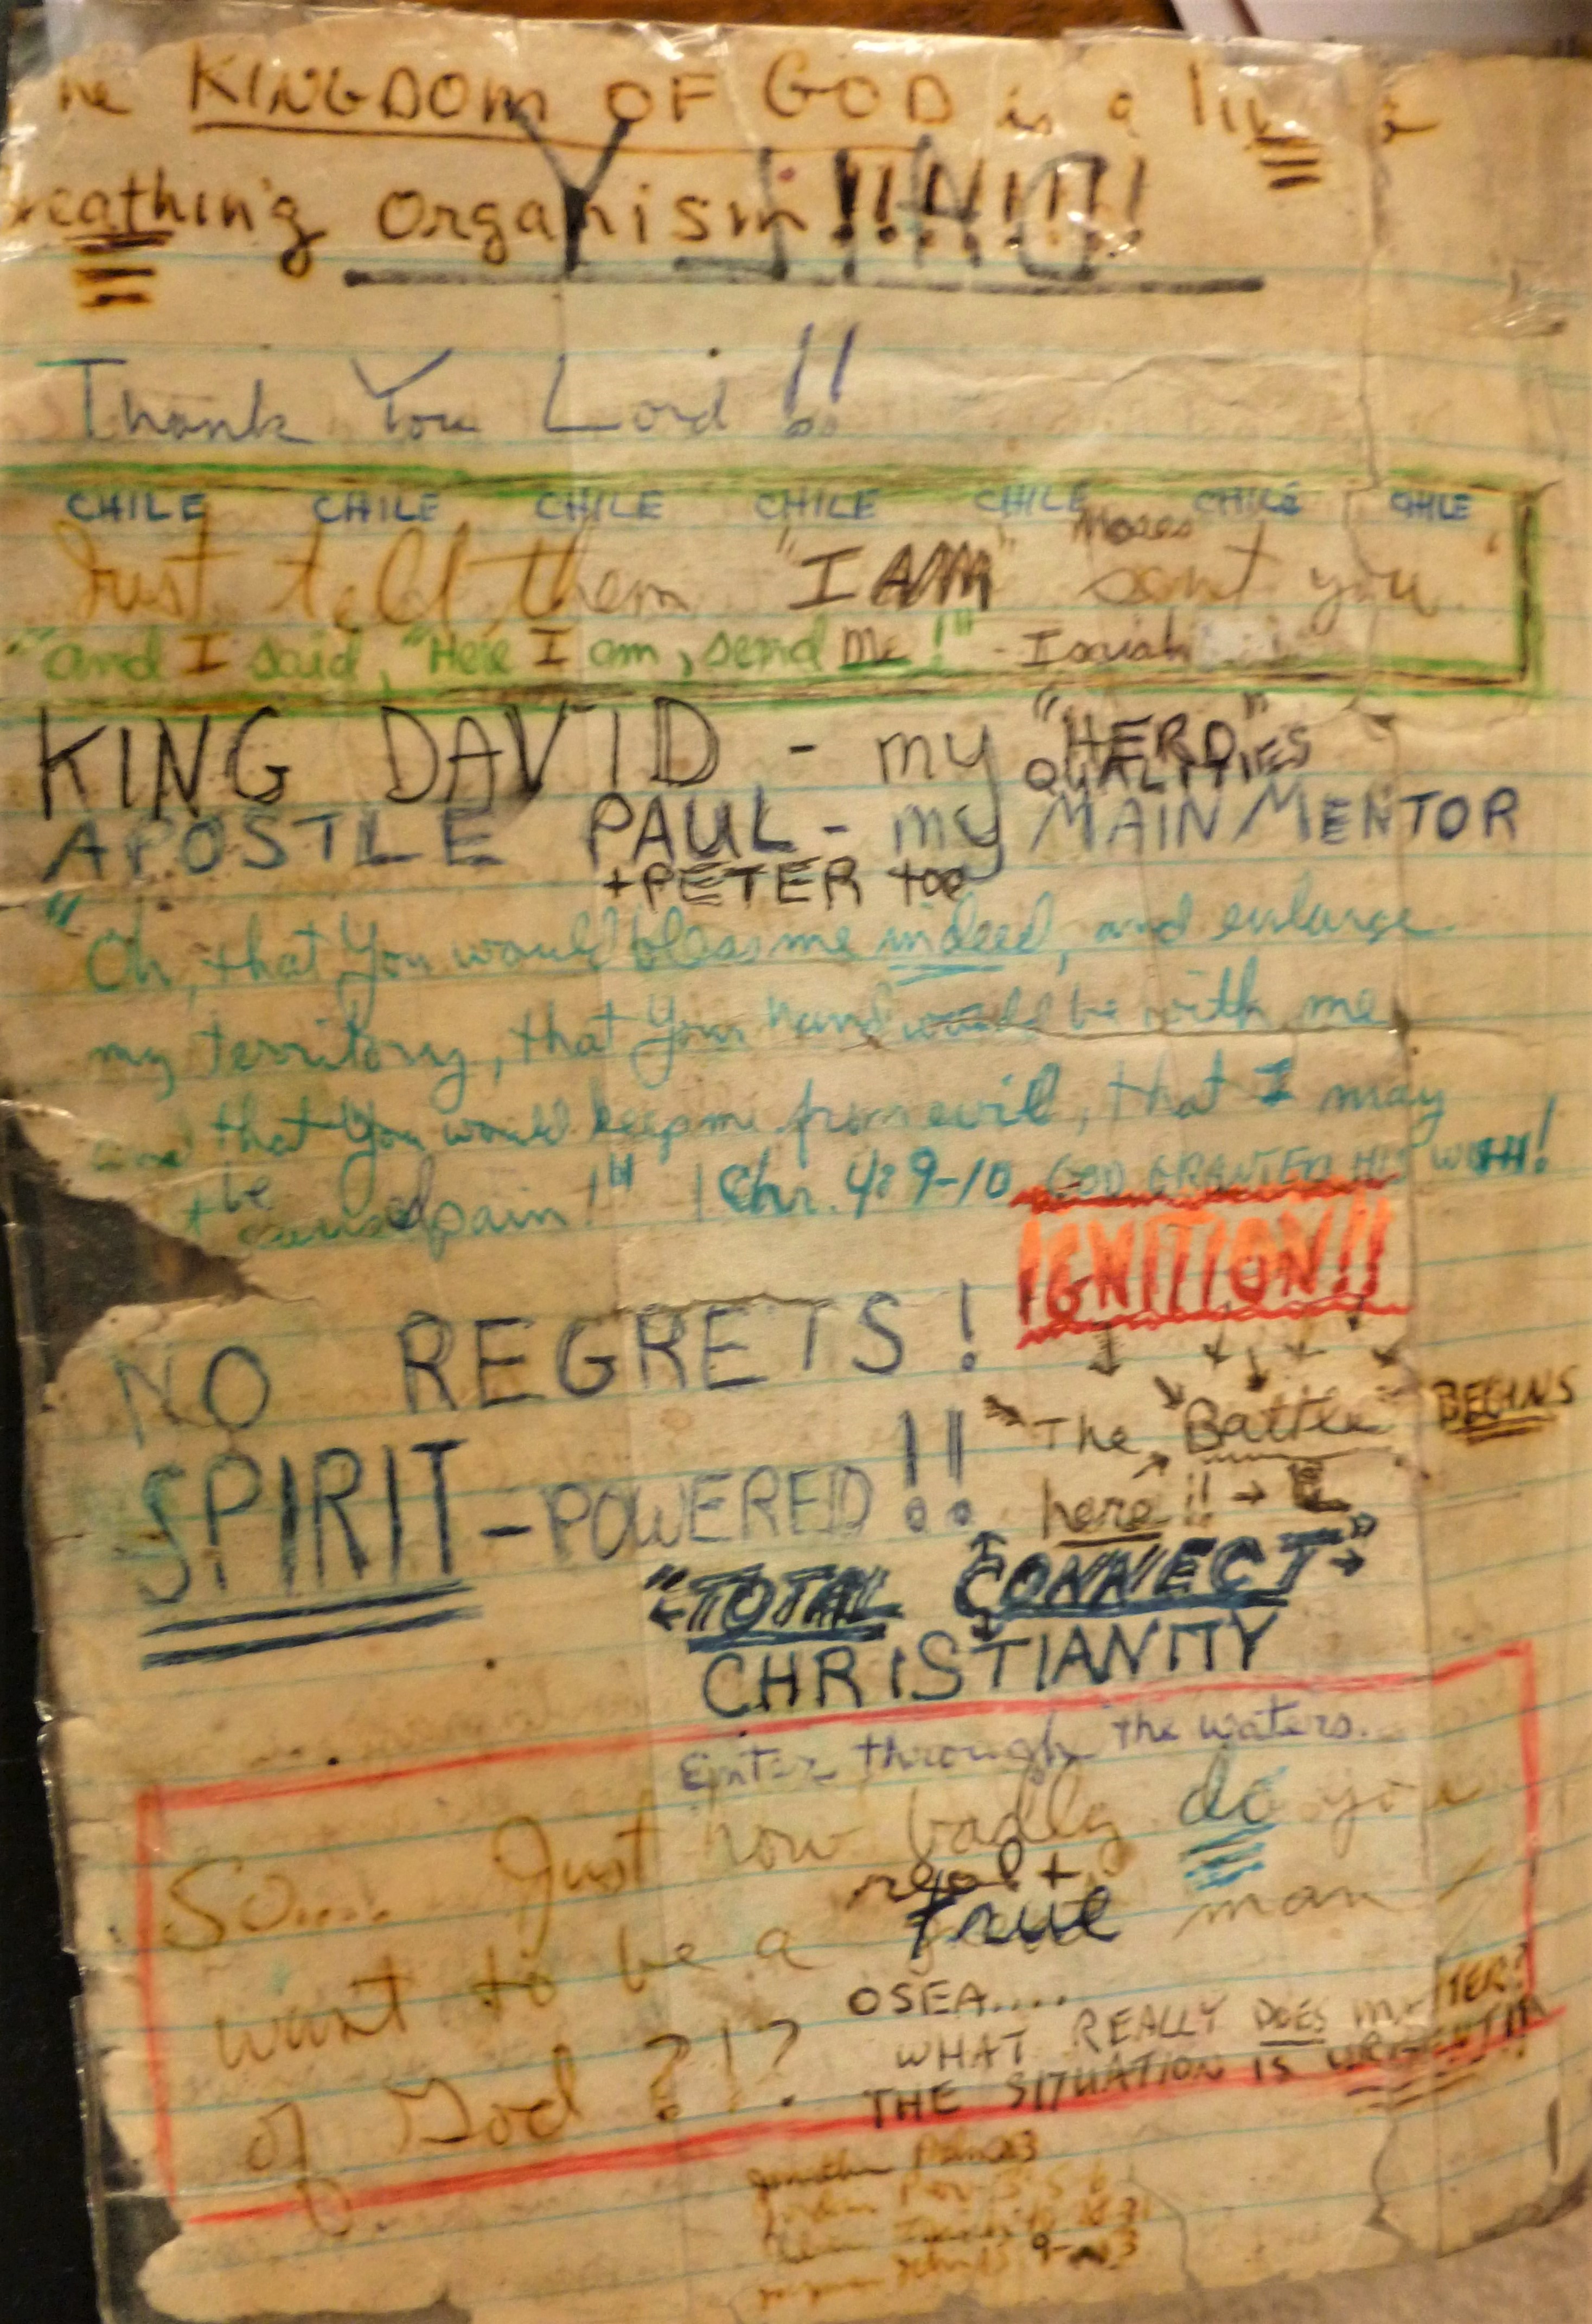 he KINGDOM OF GOD is a
eathing organism!!!!!!!!
Thank You Lord!!
CHILE CHILE CHILE CHILE CHILE CHILE CHILE
Moses
Just tell them "I AM" sent you
"and I said, "Here I am, send me!" - Isaiah
KING DAVID - my "HERO"
QUALITIES
APOSTLE PAUL - my MAIN MENTOR
+PETER too
"Oh, that You would bless me indeed, and enlarge
my territory, that Your hand would be with me
and that You would keep me from evil, that I may
be
pain!" 1 Chr. 4:9-10 GOD GRANTED HIS WISH!
IGNITION!!
NO REGRETS!
The "Battle" BEGINS
here!!
SPIRIT-POWERED!!
"TOTAL CONNECT"
CHRISTIANITY
Enter through the waters.
So.... Just how badly do you
real +
want to be a true man
of God?!?
OSEA....
WHAT REALLY DOES MATTER?
THE SITUATION IS URGENT!!!